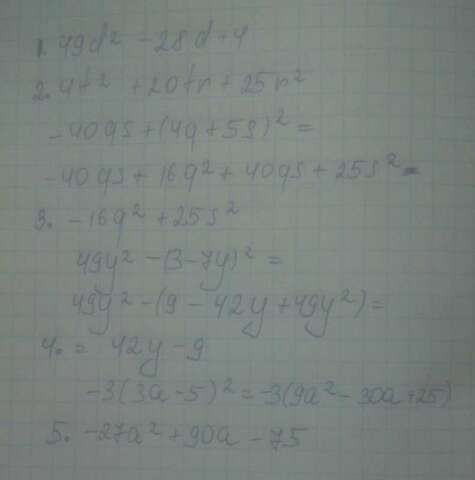 1. 49d² - 28d + 4
2. 4t² + 20tr + 25r²
-40qs + (4q + 5s)² =
-40qs + 16q² + 40qs + 25s² =
3. -16q² + 25s²
49y² - (3 - 7y)² =
49y² - (9 - 42y + 49y²) =
4. = 42y - 9
-3(3a - 5)² = -3(9a² - 30a + 25)
5. -27a² + 90a - 75